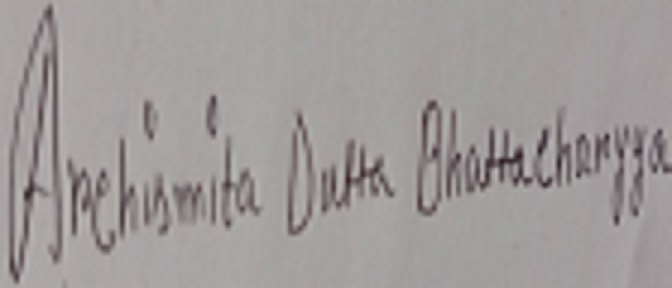 Archismita Dutta Bhattacharyya